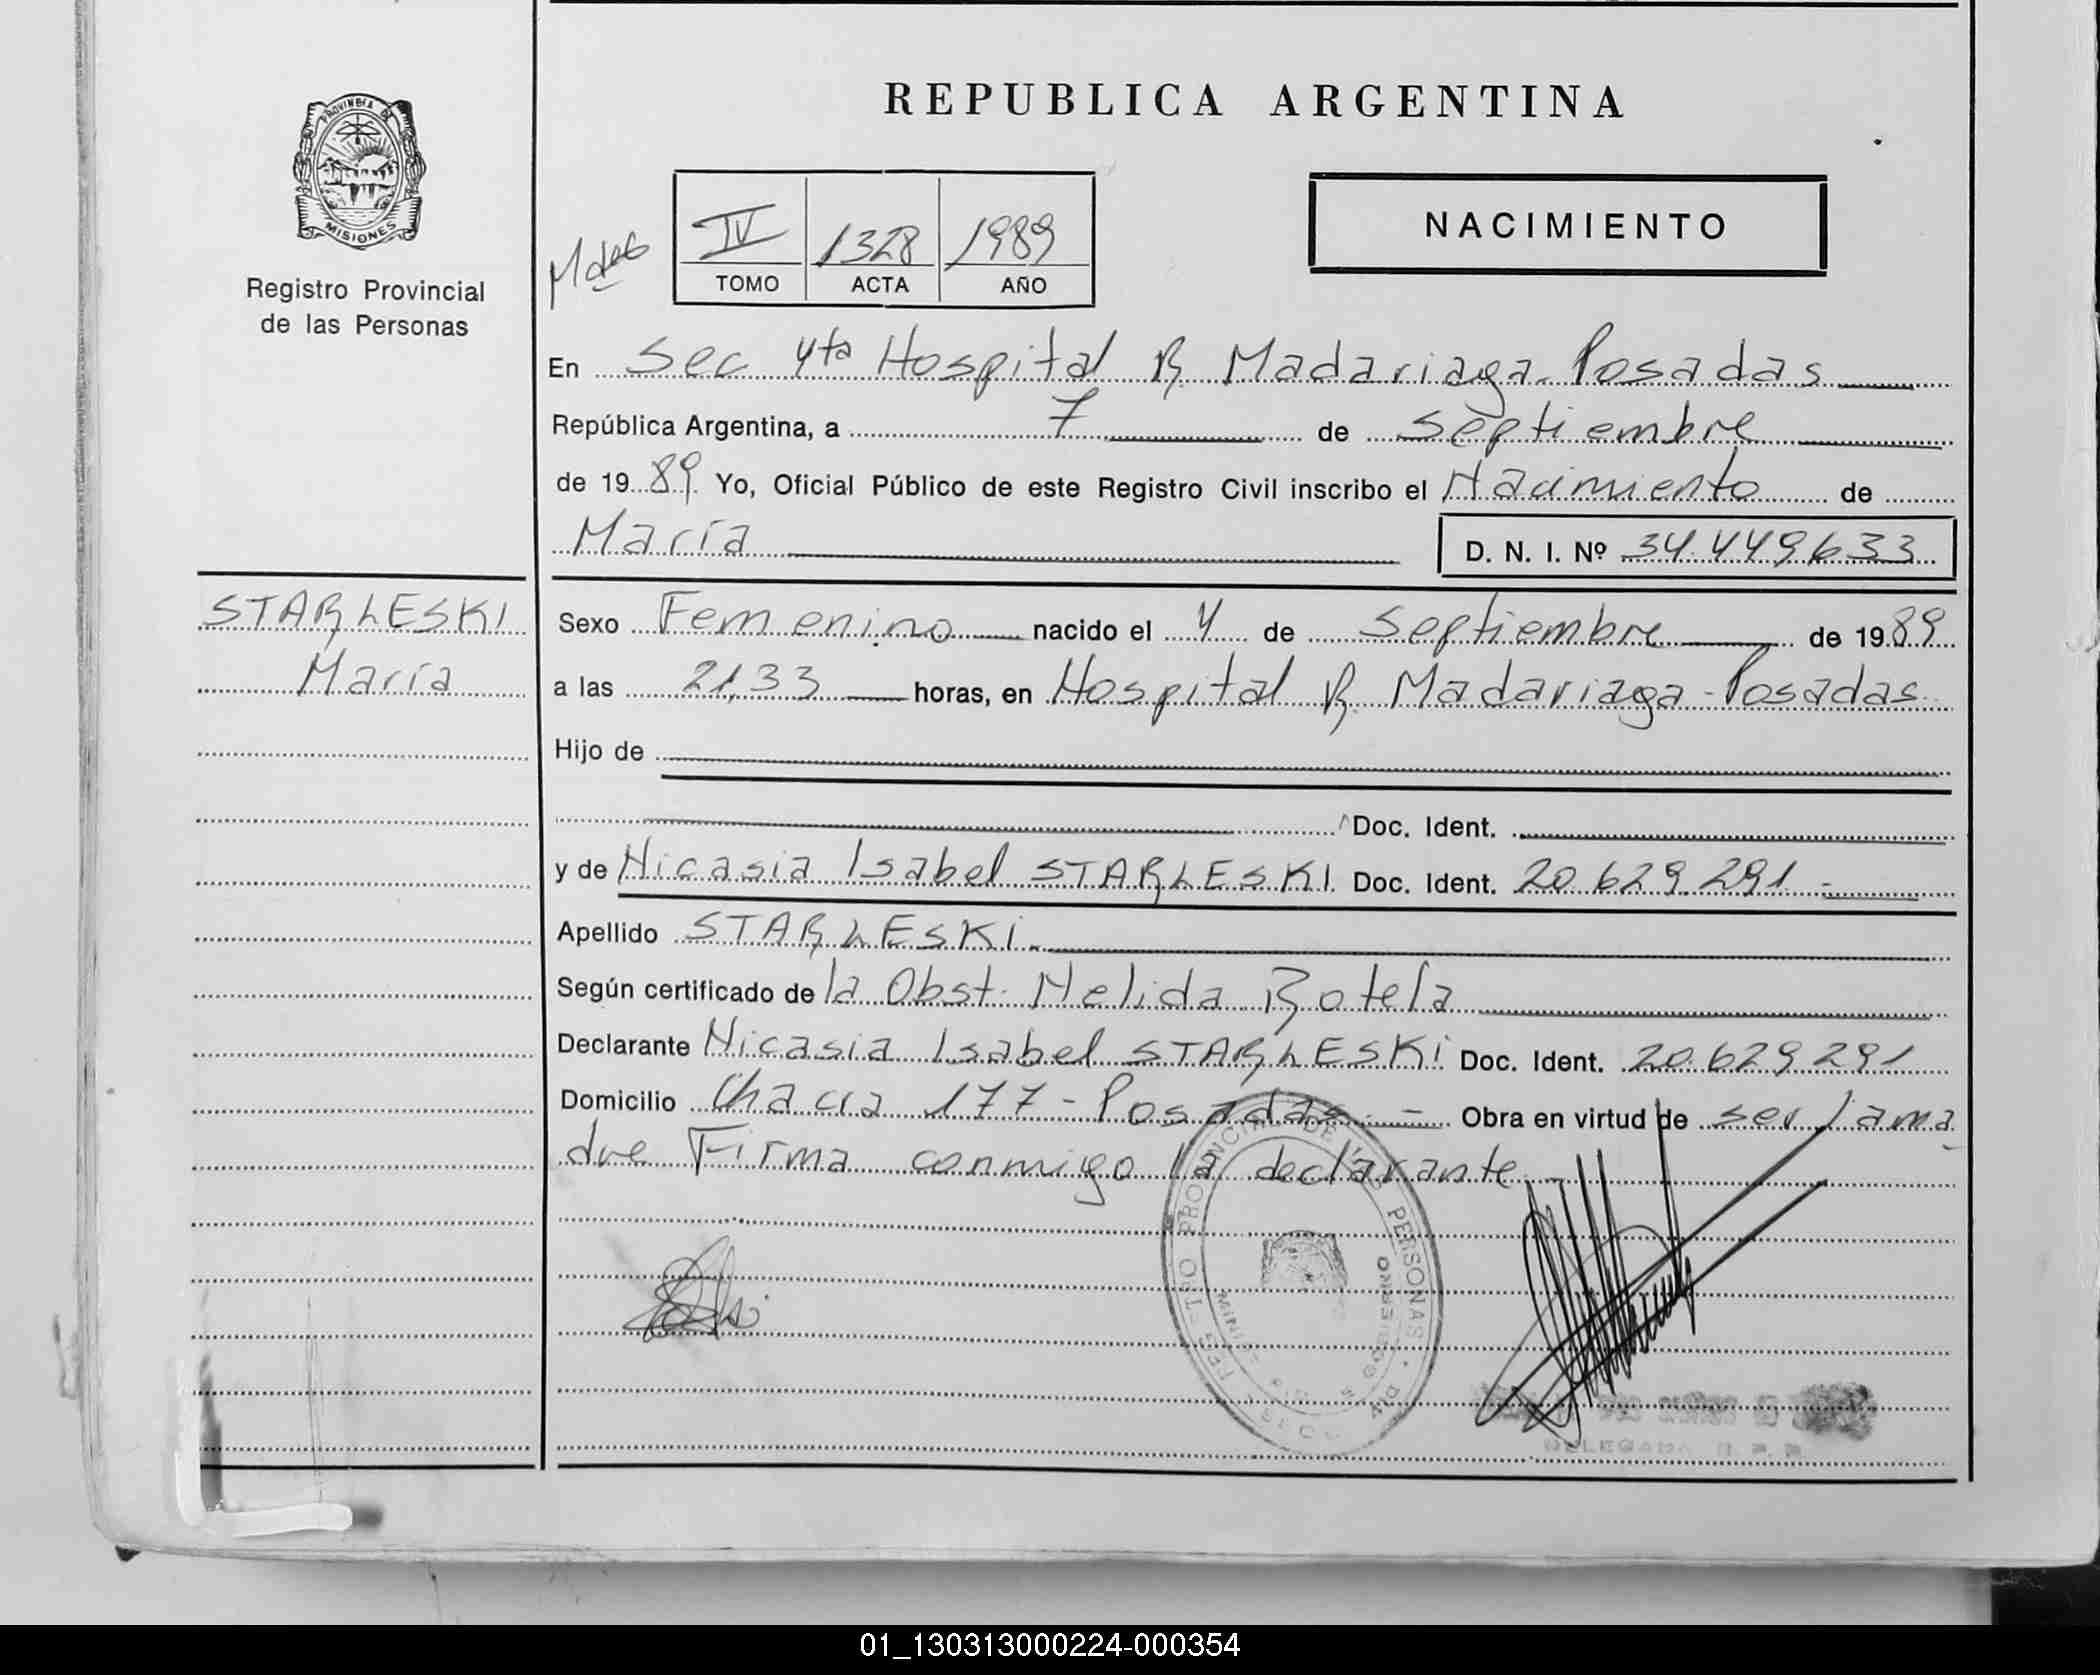 REPUBLICA ARGENTINA
PROVINCIA DE
MISIONES
Registro Provincial
de las Personas
NACIMIENTO
IV 1328 1989
TOMO ACTA AÑO
En Sec 4ta Hospital R. Madariaga-Posadas
República Argentina, a 7 de septiembre
de 1989 Yo, Oficial Público de este Registro Civil inscribo el Nacimiento de
María D. N. I. Nº 34.449633
STARLESKI
María
Sexo Femenino nacido el 4 de septiembre de 1989
a las 21,33 horas, en Hospital R. Madariaga-Posadas
Hijo de
Doc. Ident.
y de Nicasia Isabel STARLESKI Doc. Ident. 20.629.291-
Apellido STARLESKI
Según certificado de la Obst. Nelida Rotela
Declarante Nicasia Isabel STARLESKI Doc. Ident. 20.629291
Domicilio Chacra 177-Posadas.- Obra en virtud de ser la ma
dre Firma conmigo la declarante.-
REGISTRO PROVINCIAL DE LAS PERSONAS
GOBIERNO
DELEGADA R. P. P.
01_130313000224-000354